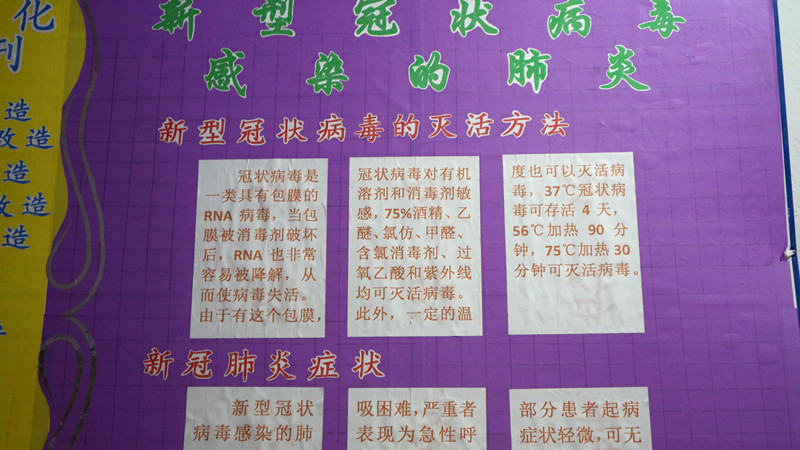 化
刊
造
改造
造
改造
造
新型冠状病毒
感染的肺炎
新型冠状病毒的灭活方法
冠状病毒是
一类具有包膜的
RNA 病毒，当包
膜被消毒剂破坏
后，RNA 也非常
容易被降解，从
而使病毒失活。
由于有这个包膜，
冠状病毒对有机
溶剂和消毒剂敏
感，75%酒精、乙
醚、氯仿、甲醛、
含氯消毒剂、过
氧乙酸和紫外线
均可灭活病毒。
此外，一定的温
度也可以灭活病
毒，37℃冠状病
毒可存活 4 天，
56℃加热 90 分
钟，75℃加热 30
分钟可灭活病毒。
新冠肺炎症状
新型冠状
病毒感染的肺
吸困难，严重者
表现为急性呼
部分患者起病
症状轻微，可无